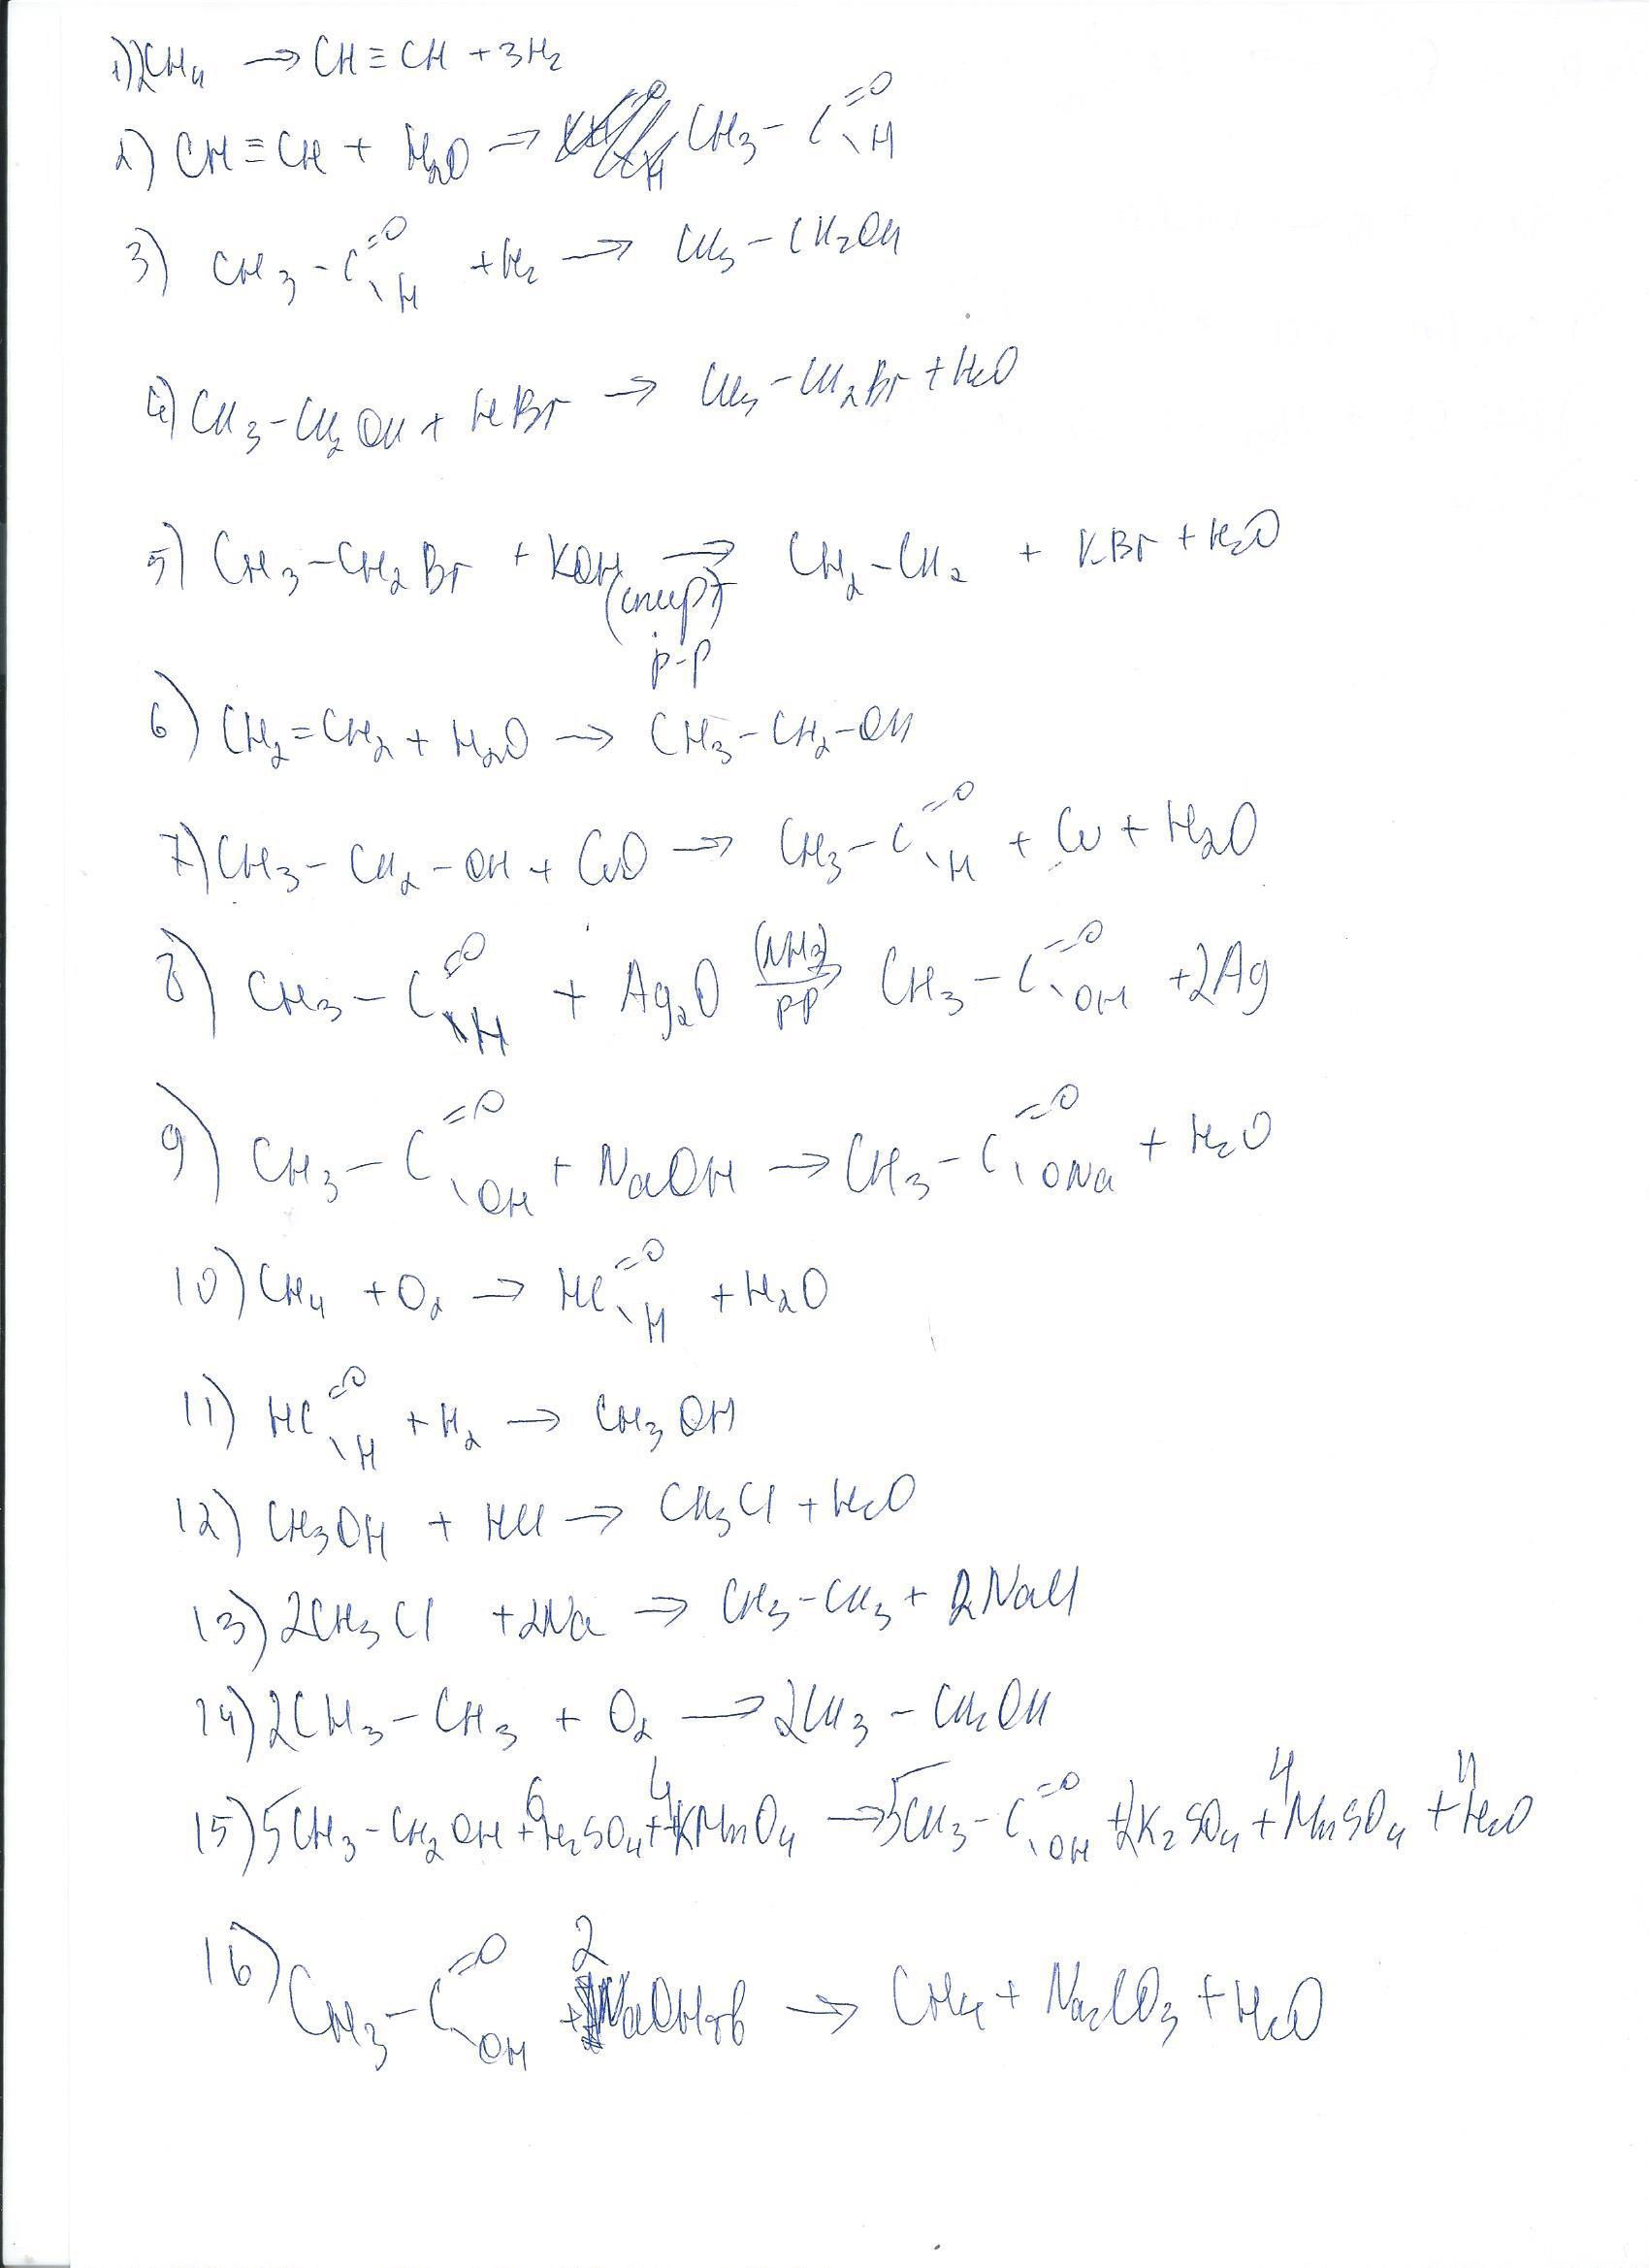 1) 2CH₄ → CH≡CH + 3H₂
2) CH≡CH + H₂O → CH₃-C=O\H
3) CH₃-C=O\H + H₂ → CH₃-CH₂OH
4) CH₃-CH₂OH + HBr → CH₃-CH₂Br + H₂O
5) CH₃-CH₂Br + KOH (спирт) р-р → CH₂-CH₂ + KBr + H₂O
6) CH₂=CH₂ + H₂O → CH₃-CH₂-OH
7) CH₃-CH₂-OH + CuO → CH₃-C=O\H + Cu + H₂O
8) CH₃-C=O\H + Ag₂O (NH₃) р-р → CH₃-C=O\OH + 2Ag
9) CH₃-C=O\OH + NaOH → CH₃-C=O\ONa + H₂O
10) CH₄ + O₂ → HC=O\H + H₂O
11) HC=O\H + H₂ → CH₃OH
12) CH₃OH + HCl → CH₃Cl + H₂O
13) 2CH₃Cl + 2Na → CH₃-CH₃ + 2NaCl
14) 2CH₃-CH₃ + O₂ → 2CH₃-CH₂OH
15) 5CH₃-CH₂OH + 6H₂SO₄ + 4KMnO₄ → 5CH₃-C=O\OH + 2K₂SO₄ + 4MnSO₄ + 11H₂O
16) CH₃-C=O\OH + 2NaOHтв → CH₄ + Na₂CO₃ + H₂O